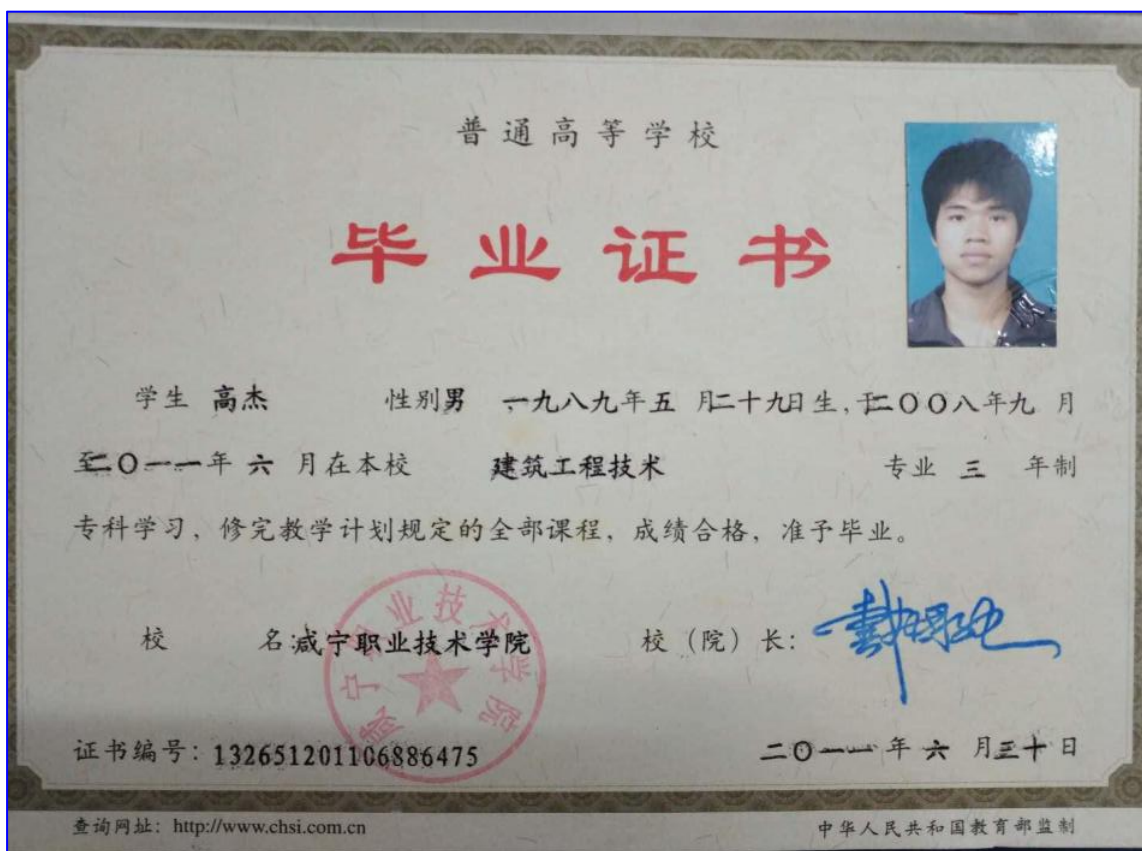 普通高等学校
毕业证书
学生 高杰 性别 男 一九八九年五月二十九日生,于二〇〇八年九月
至二〇一一年六月在本校 建筑工程技术 专业 三 年制
专科学习，修完教学计划规定的全部课程，成绩合格，准予毕业。
校 名:咸宁职业技术学院 校（院）长:
咸宁职业技术学院
证书编号: 132651201106886475 二〇一一年六月三十日
查询网址: http://www.chsi.com.cn 中华人民共和国教育部监制